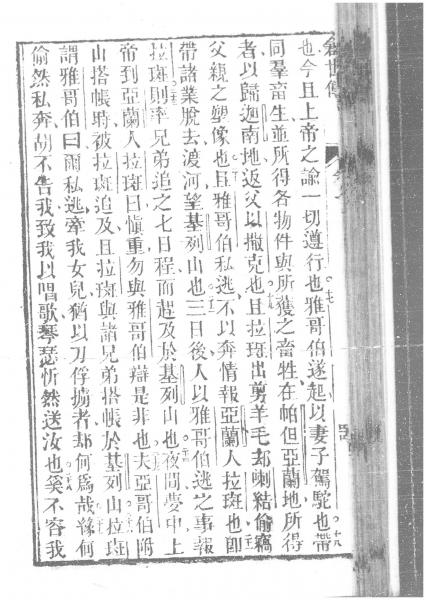 也今且上帝之諭一切遵行也雅哥伯遂起以妻子駕駝也帶
同羣畜生並所得各物件與所獲之畜牲在帕但亞蘭地所得
者以歸迦南地返父以撒克也且拉班出剪羊毛刦喇結偷竊
父親之塑像也且雅哥伯私逃不以奔情報亞蘭人拉班也即
帶諸業脫去渡河望基列山也三日後人以雅哥伯逃之事報
拉班則率兄弟追之七日程而趕及於基列山也夜間夢中上
帝到亞蘭人拉班曰慎重勿與雅哥伯辯是非也夫亞哥伯附
山搭帳時被拉班追及且拉班與諸兄弟搭帳於基列山拉班
謂雅哥伯曰爾私逃牽我女兒猶以刀俘擄者却何爲哉豫何
偷然私奔胡不告我致我以唱歌琴瑟忻然送汝也奚不容我